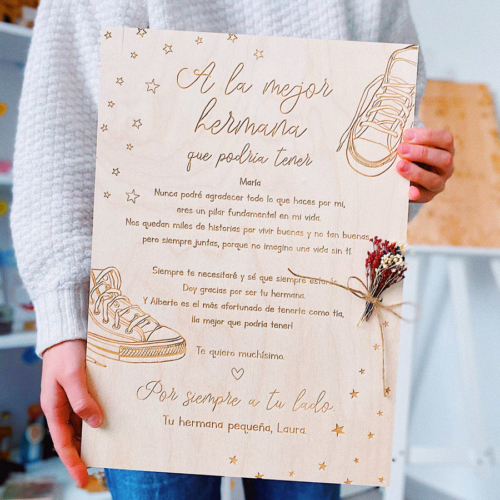 A la mejor
hermana
que podría tener
María
Nunca podré agradecer todo lo que haces por mi,
eres un pilar fundamental en mi vida.
Nos quedan miles de historias por vivir buenas y no tan buenas,
pero siempre juntas, porque no imagino una vida sin ti.
Siempre te necesitaré y sé que siempre estarás.
Doy gracias por ser tu hermana.
Y Alberto es el más afortunado de tenerte como tía,
¡la mejor que podría tener!
Te quiero muchísimo.
Por siempre a tu lado.
Tu hermana pequeña, Laura.